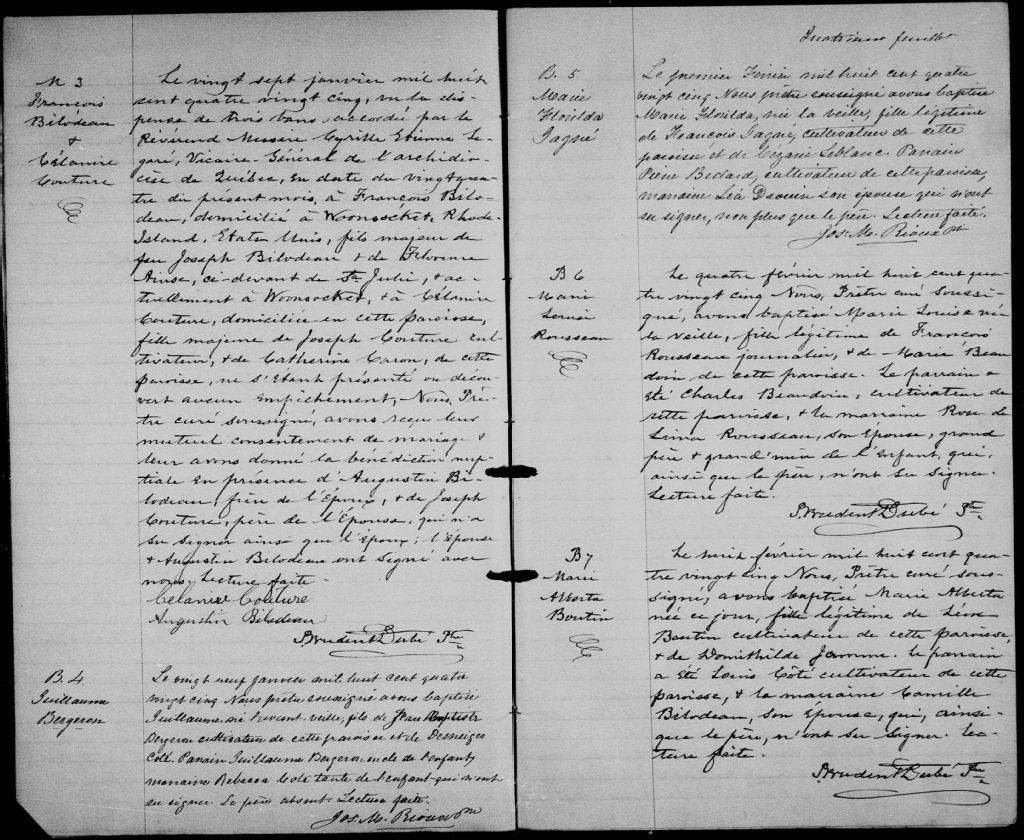 M 3
François
Bilodeau
&
Célanire
Couture
Le vingt sept janvier mil huit
cent quatre vingt cinq, vu la dis-
pense de trois bans, accordée par le
Révérend Messire Cyrille Etienne Le-
garé, Vicaire-Général de l'archidio-
cèse de Québec, en date du vingt qua-
tre du présent mois, à François Bilo-
deau, domicilié à Woonsocket, Rhode
Island, Etats Unis, fils majeur de
feu Joseph Bilodeau & de Florence
ci-devant de Ste Julie, & ac-
tuellement à Woonsocket, & à Célanire
Couture, domiciliée en cette paroisse,
fille majeure de Joseph Couture cul-
tivateur, & de Catherine Caron, de cette
paroisse, ne s'étant présenté ou décou-
vert aucun empêchement, Nous, Prê-
tre curé soussigné, avons reçu leur
mutuel consentement de mariage &
leur avons donné la bénédiction nup-
tiale en présence d'Augustin Bi-
lodeau, frère de l'époux, & de Joseph
Couture, père de l'épouse, qui n'a
su signer ainsi que l'époux; l'épouse
& Augustin Bilodeau ont signé avec
nous, Lecture faite -
Célanire Couture
Augustin Bilodeau
Prudent Dubé Ptre
B. 4
Guillaume
Bergeron
Le vingt neuf janvier mil huit cent quatre
vingt cinq Nous prêtre soussigné avons baptisé
Guillaume né l'avant veille, fils de Jean Baptiste
Bergeron cultivateur de cette paroisse et de Desneiges
Coté. Parrain Guillaume Bergeron oncle de l'enfant,
marraine Rebecca Coté tante de l'enfant qui n'ont
su signer. Le père absent. Lecture faite.
Jos. M. Rioux Ptre
Quatrième feuillet
B. 5
Marie
Florilda
Gagné
Le premier Février mil huit cent quatre
vingt cinq Nous prêtre soussigné avons baptisé
Marie Florilda, née la veille, fille légitime
de François Gagné, cultivateur de cette
paroisse et de Leblanc. Parrain
Pierre Bedard, cultivateur de cette paroisse,
marraine Léa Drouin son épouse qui n'ont
su signer, non plus que le père. Lecture faite.
Jos. M. Rioux Ptre
B 6
Marie
Louise
Rousseau
Le quatre février mil huit cent qua-
tre vingt cinq Nous, Prêtre curé soussi-
gné, avons baptisé Marie Louise née
la veille, fille légitime de François
Rousseau journalier, & de Marie Beau
doin de cette paroisse. Le parrain a
été Charles Beaudoin, cultivateur de
cette paroisse, & la marraine Rose de
Lima Rousseau, son épouse, grand
père & grand'mère de l'enfant, qui,
ainsi que le père, n'ont su signer.
Lecture faite.
Prudent Dubé Ptre
B 7
Marie
Alberta
Boutin
Le huit février mil huit cent qua-
tre vingt cinq Nous, Prêtre curé sous-
signé, avons baptisé Marie Alberta
née ce jour, fille légitime de Léon
Boutin cultivateur de cette paroisse,
& de Domithilde Jamme. le parrain
a été Louis Côté cultivateur de cette
paroisse, & la marraine Camille
Bilodeau, son épouse, qui, ainsi
que le père, n'ont su signer. Lec-
ture faite.
Prudent Dubé Ptre